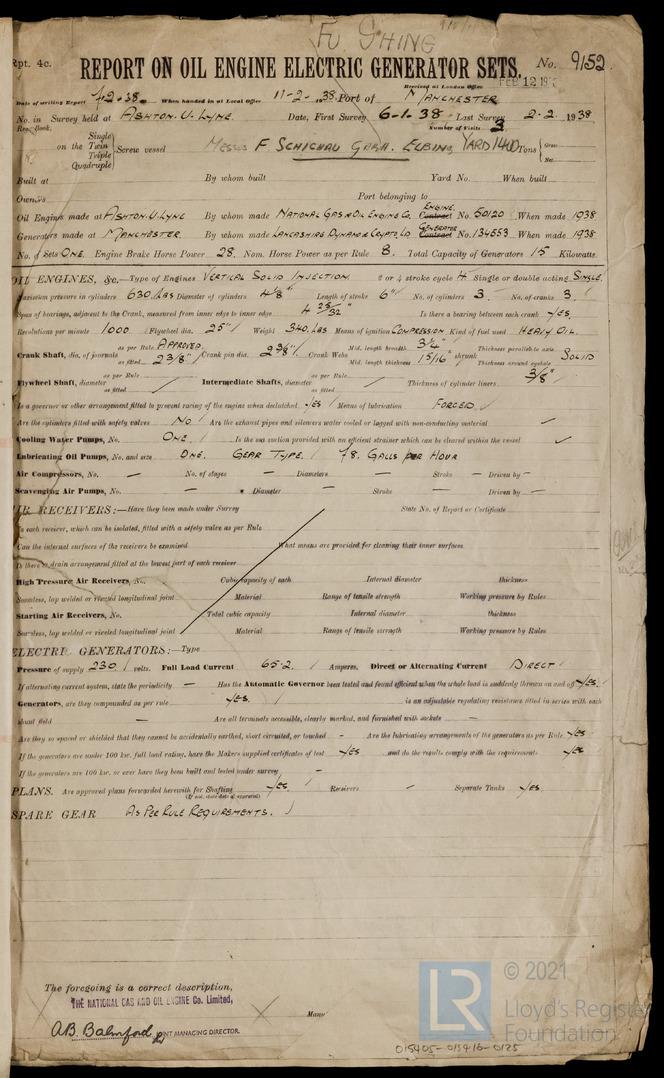 FU SHING
Rpt. 4c.
REPORT ON OIL ENGINE ELECTRIC GENERATOR SETS. No. 9152
Received at London Office FEB 12 193
Date of writing Report 7.2.38. When handed in at Local Office 11-2-1938. Port of MANCHESTER
No. in Survey held at ASHTON. U. LYNE. Date, First Survey 6-1-38 Last Survey 2-2-1938
Reg. Book. Number of Visits 3
Single
on the Twin Triple Quadruple Screw vessel MESSRS F SCHICHAU GmbH. ELBING YARD 1400 Tons Gross Net
Built at By whom built Yard No. When built
Owners Port belonging to
Oil Engines made at ASHTON. U. LYNE By whom made NATIONAL GAS & OIL ENGINE Co. ENGINE Contract No. 50120 When made 1938
Generators made at MANCHESTER. By whom made LANCASHIRE DYNAMO & CRYPTO, LD GENERATOR Contract No. 134553 When made 1938
No. of Sets ONE. Engine Brake Horse Power 28. Nom. Horse Power as per Rule 8. Total Capacity of Generators 15 Kilowatts.
OIL ENGINES, &c.—Type of Engines VERTICAL SOLID INJECTION 2 or 4 stroke cycle 4 Single or double acting SINGLE
Maximum pressure in cylinders 630 LBS Diameter of cylinders 4 1/8" Length of stroke 6" No. of cylinders 3. No. of cranks 3.
Span of bearings, adjacent to the Crank, measured from inner edge to inner edge 4 25/32" Is there a bearing between each crank YES.
Revolutions per minute 1000 Flywheel dia. 25" Weight 340. LBS Means of ignition COMPRESSION Kind of fuel used HEAVY OIL.
Crank Shaft, dia. of journals as per Rule APPROVED. as fitted 2 3/8" Crank pin dia. 2 3/8" Crank Webs Mid. length breadth 3 1/2" Mid. length thickness 15/16" shrunk Thickness parallel to axis Thickness around eyehole SOLID
Flywheel Shaft, diameter as per Rule as fitted Intermediate Shafts, diameter as per Rule as fitted Thickness of cylinder liners 3/8"
Is a governor or other arrangement fitted to prevent racing of the engine when declutched YES Means of lubrication FORCED
Are the cylinders fitted with safety valves No Are the exhaust pipes and silencers water cooled or lagged with non-conducting material —
Cooling Water Pumps, No. ONE. Is the sea suction provided with an efficient strainer which can be cleared within the vessel ✓
Lubricating Oil Pumps, No. and size ONE. GEAR TYPE. 78. GALLS PER HOUR
Air Compressors, No. — No. of stages — Diameters — Stroke — Driven by —
Scavenging Air Pumps, No. — Diameter — Stroke — Driven by —
AIR RECEIVERS:—Have they been made under Survey State No. of Report or Certificate
Is each receiver, which can be isolated, fitted with a safety valve as per Rule
Can the internal surfaces of the receivers be examined What means are provided for cleaning their inner surfaces
Is there a drain arrangement fitted at the lowest part of each receiver
High Pressure Air Receivers, No. Cubic capacity of each Internal diameter thickness
Seamless, lap welded or riveted longitudinal joint Material Range of tensile strength Working pressure by Rules
Starting Air Receivers, No. Total cubic capacity Internal diameter thickness
Seamless, lap welded or riveted longitudinal joint Material Range of tensile strength Working pressure by Rules
ELECTRIC GENERATORS:—Type
Pressure of supply 230 volts. Full Load Current 65.2. Amperes. Direct or Alternating Current DIRECT
If alternating current system, state the periodicity — Has the Automatic Governor been tested and found efficient when the whole load is suddenly thrown on and off YES.
Generators, are they compounded as per rule YES. is an adjustable regulating resistance fitted in series with each
shunt field — Are all terminals accessible, clearly marked, and furnished with sockets —
Are they so spaced or shielded that they cannot be accidentally earthed, short circuited, or touched - Are the lubricating arrangements of the generators as per Rule YES
If the generators are under 100 kw. full load rating, have the Makers supplied certificates of test YES and do the results comply with the requirements YES
If the generators are 100 kw. or over have they been built and tested under survey —
PLANS. Are approved plans forwarded herewith for Shafting YES. Receivers - Separate Tanks YES.
(If not, state date of approval)
SPARE GEAR AS PER RULE REQUIREMENTS.
The foregoing is a correct description,
THE NATIONAL GAS AND OIL ENGINE Co. Limited,
A.B. Balmford JOINT MANAGING DIRECTOR.
Manu
LR
© 2021
Lloyd's Register
Foundation
015405-015416-0125